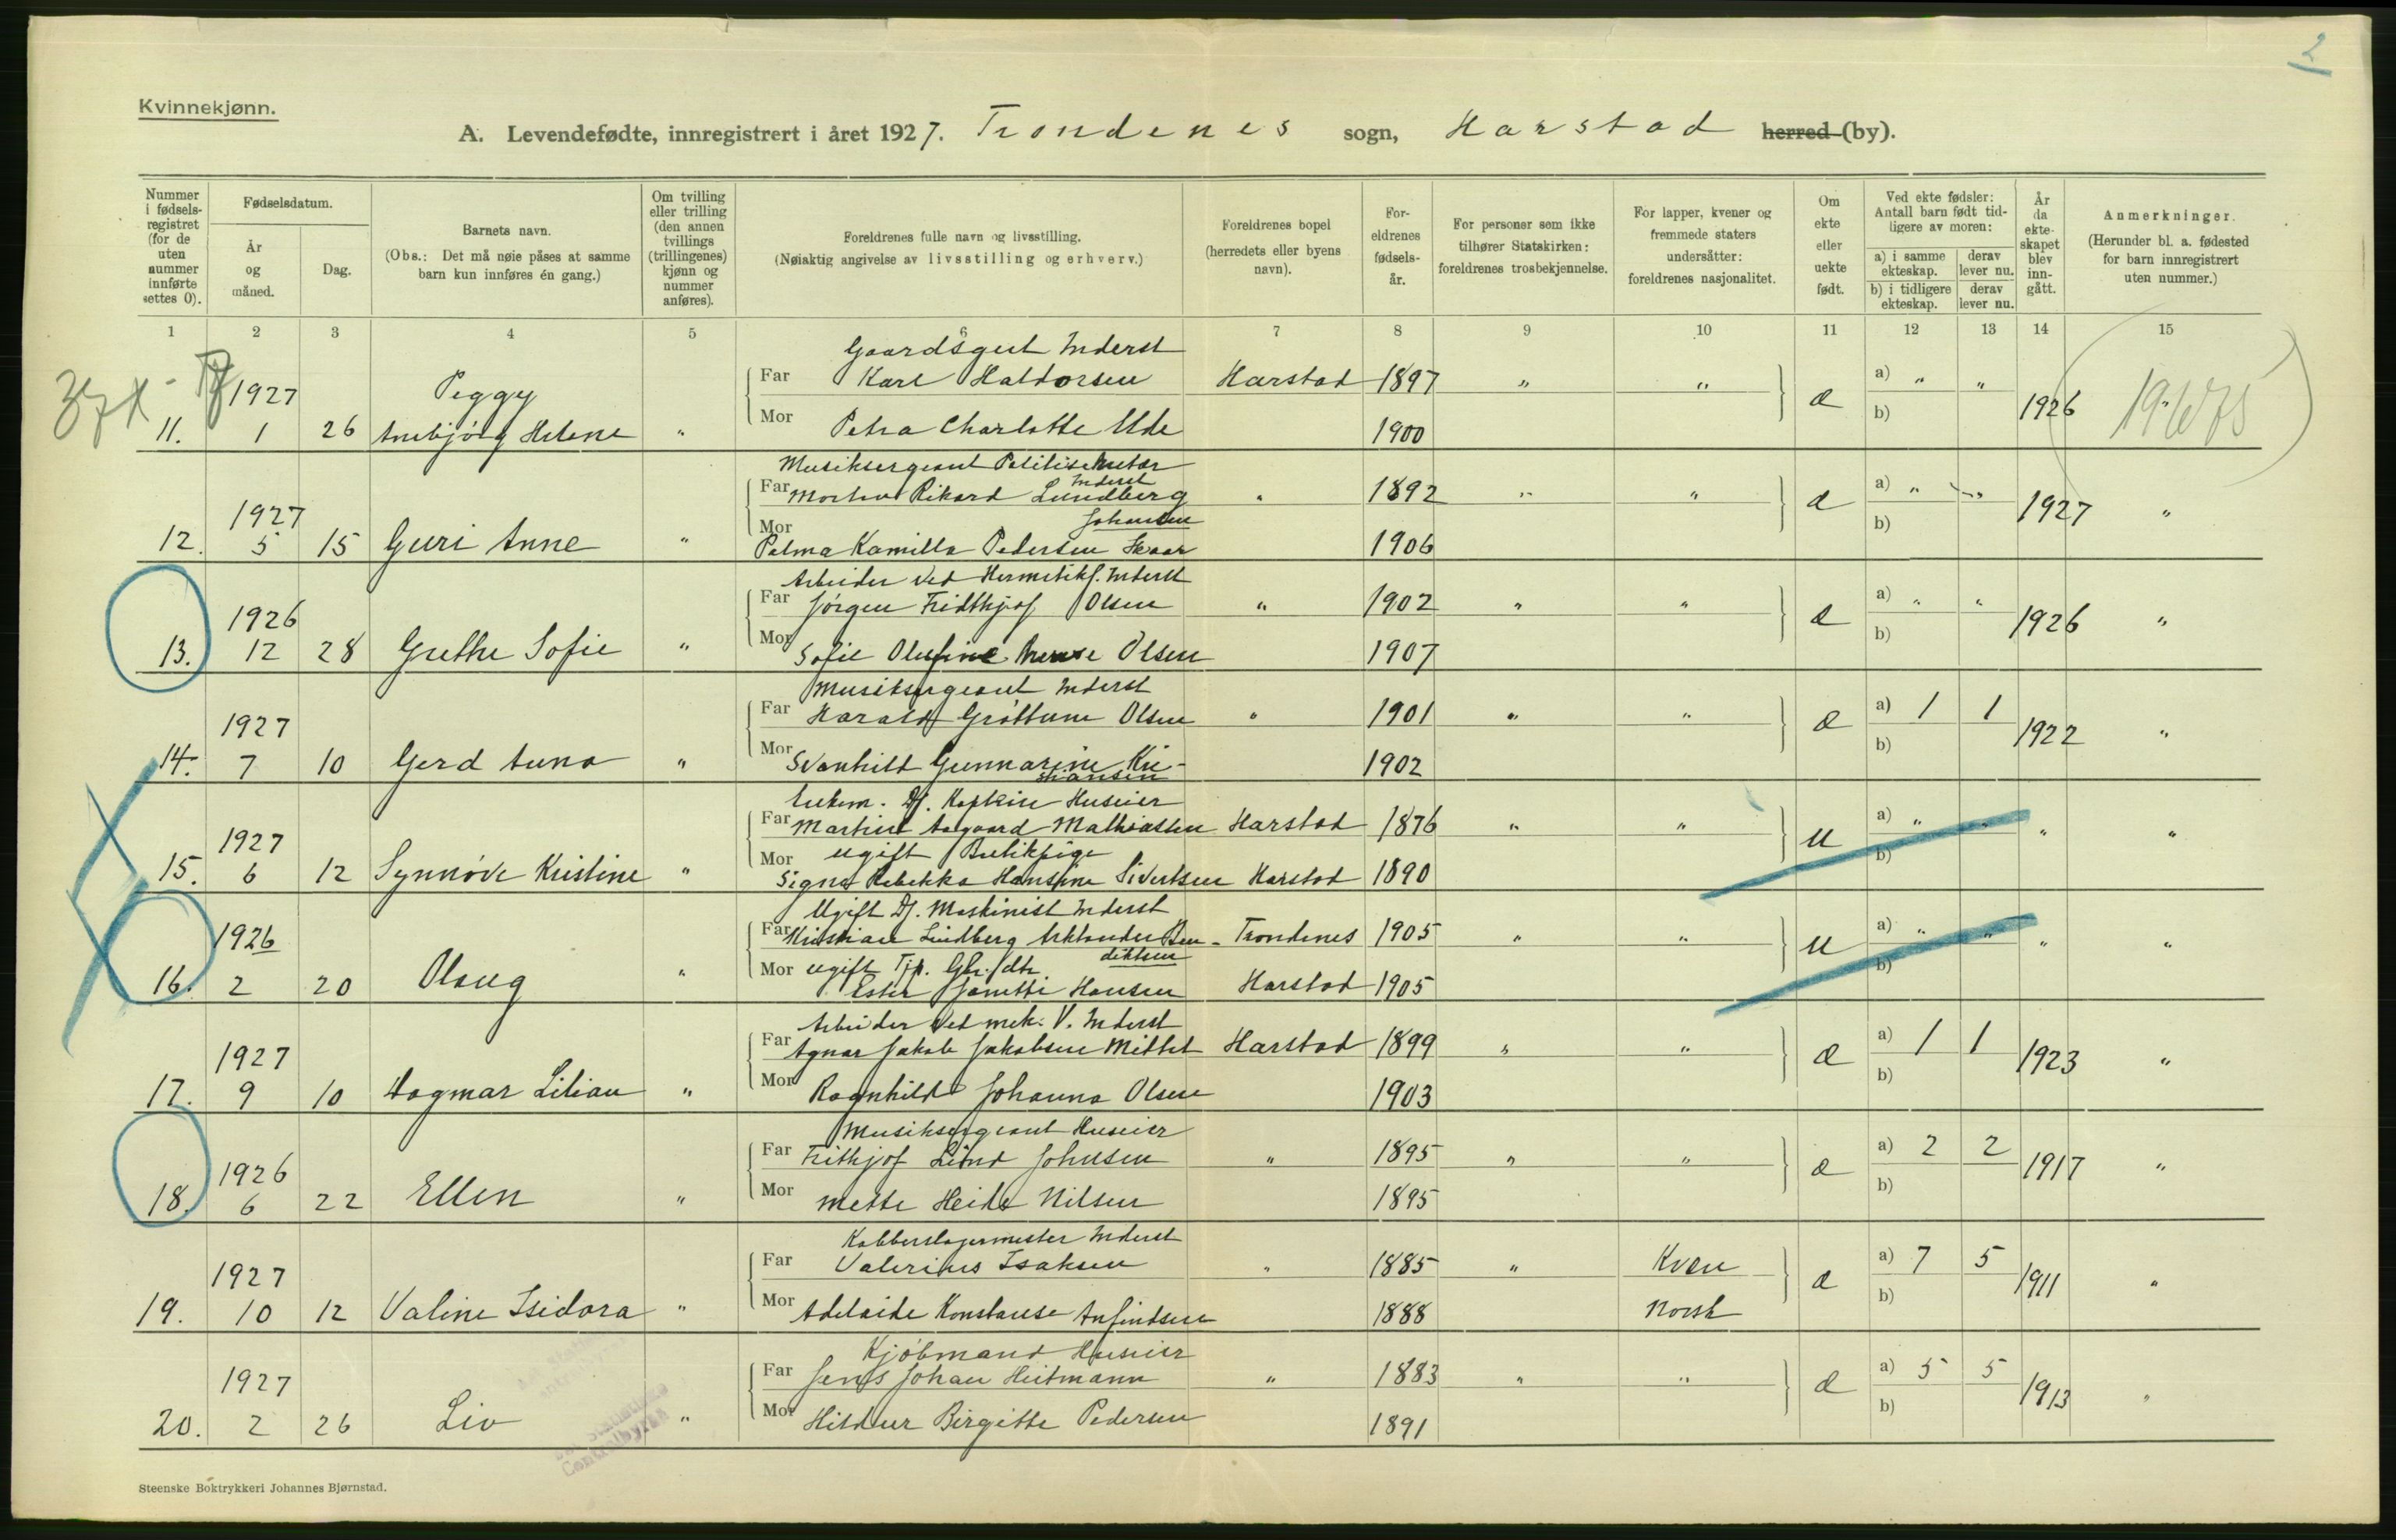 2
Kvinnekjønn.
A. Levendefødte, innregistrert i året 1927. Trondenes sogn, Harstad herred (by).
Nummer i fødselsregistret (for de uten nummer innførte settes 0).
Fødselsdatum.
År og måned.
Dag.
Barnets navn.
(Obs.: Det må nøie påses at samme barn kun innføres én gang.)
Om tvilling eller trilling (den annen tvillings (trillingenes) kjønn og nummer anføres).
Foreldrenes fulle navn og livsstilling.
(Nøiaktig angivelse av livsstilling og erhverv.)
Foreldrenes bopel (herredets eller byens navn).
Foreldrenes fødselsår.
For personer som ikke tilhører Statskirken: foreldrenes trosbekjennelse.
For lapper, kvener og fremmede staters undersåtter: foreldrenes nasjonalitet.
Om ekte eller uekte født.
Ved ekte fødsler: Antall barn født tidligere av moren:
a) i samme ekteskap. derav lever nu.
b) i tidligere ekteskap. derav lever nu.
År da ekteskapet blev inngått.
Anmerkninger.
(Herunder bl. a. fødested for barn innregistrert uten nummer.)
1 2 3 4 5 6 7 8 9 10 11 12 13 14 15
Gaardsgut Inderst
1927 Peggy Far Karl Haldorsen Harstad 1897 " " a) " "
11. 1 26 Annbjørg Helene " Mor Petra Charlotte Ude 1900 æ b) 1926 "
Musiksergeant Politisekretær
Inderst
1927 Far Morten Rikard Lundberg " 1892 " " æ a) " "
Johansen
12. 5 15 Guri Anne " Mor Palma Kamilla Pedersen Skaar 1906 b) 1927 "
Arbeider ved Hermetikf. Inderst
1926 Far Jørgen Fridthjof Olsen " 1902 " " æ a) " "
13. 12 28 Grethe Sofie " Mor Sofie Olufine Olsen 1907 b) 1926 "
Musiksergeant Inderst
1927 Far Harald Grøttum Olsen " 1901 " " æ a) 1 1
14. 7 10 Gerd Anna " Mor Svanhild Gunnarine Kristiansen 1902 b) 1922 "
Enkem. Df. Kaptein Huseier
1927 Far Martin Aagaard Mathiassen Harstad 1876 " " u a) " " "
ugift Butikpige
15. 6 12 Synnøve Kristine " Mor Signe Rebekka Hansine Sivertsen Harstad 1890 b) "
Ugift Df. Maskinist Inderst
1926 Far Kristian Lindberg Arktander Ben- Trondenes 1905 " " u a) " " "
diktsen
16. 2 20 Olaug " Mor ugift Tjp. Gbr. dtr. Ester Janette Hansen Harstad 1905 b) "
Arbeider ved mek. V. Inderst
1927 Far Agnar Jakob Jakobsen Mittet Harstad 1899 " " æ a) 1 1
17. 9 10 Dagmar Lilian " Mor Ragnhild Johanna Olsen 1903 b) 1923 "
Musiksergeant Huseier
1926 Far Frithjof Lind Johnsen " 1895 " " æ a) 2 2
18. 6 22 Ellen " Mor Mette Heide Nilsen 1895 b) 1917 "
Kobberslagermester Inderst
1927 Far Valerius Isaksen " 1885 " Kven æ a) 7 5
19. 10 12 Valine Isidora " Mor Adelaide Konstanse Anfindsen 1888 Norsk b) 1911 "
Kjøbmand Huseier
1927 Far Jens Johan Heitmann " 1883 " " æ a) 5 5
20. 2 26 Liv " Mor Hildur Birgitte Pedersen 1891 b) 1913 "
Steenske Boktrykkeri Johannes Bjørnstad.